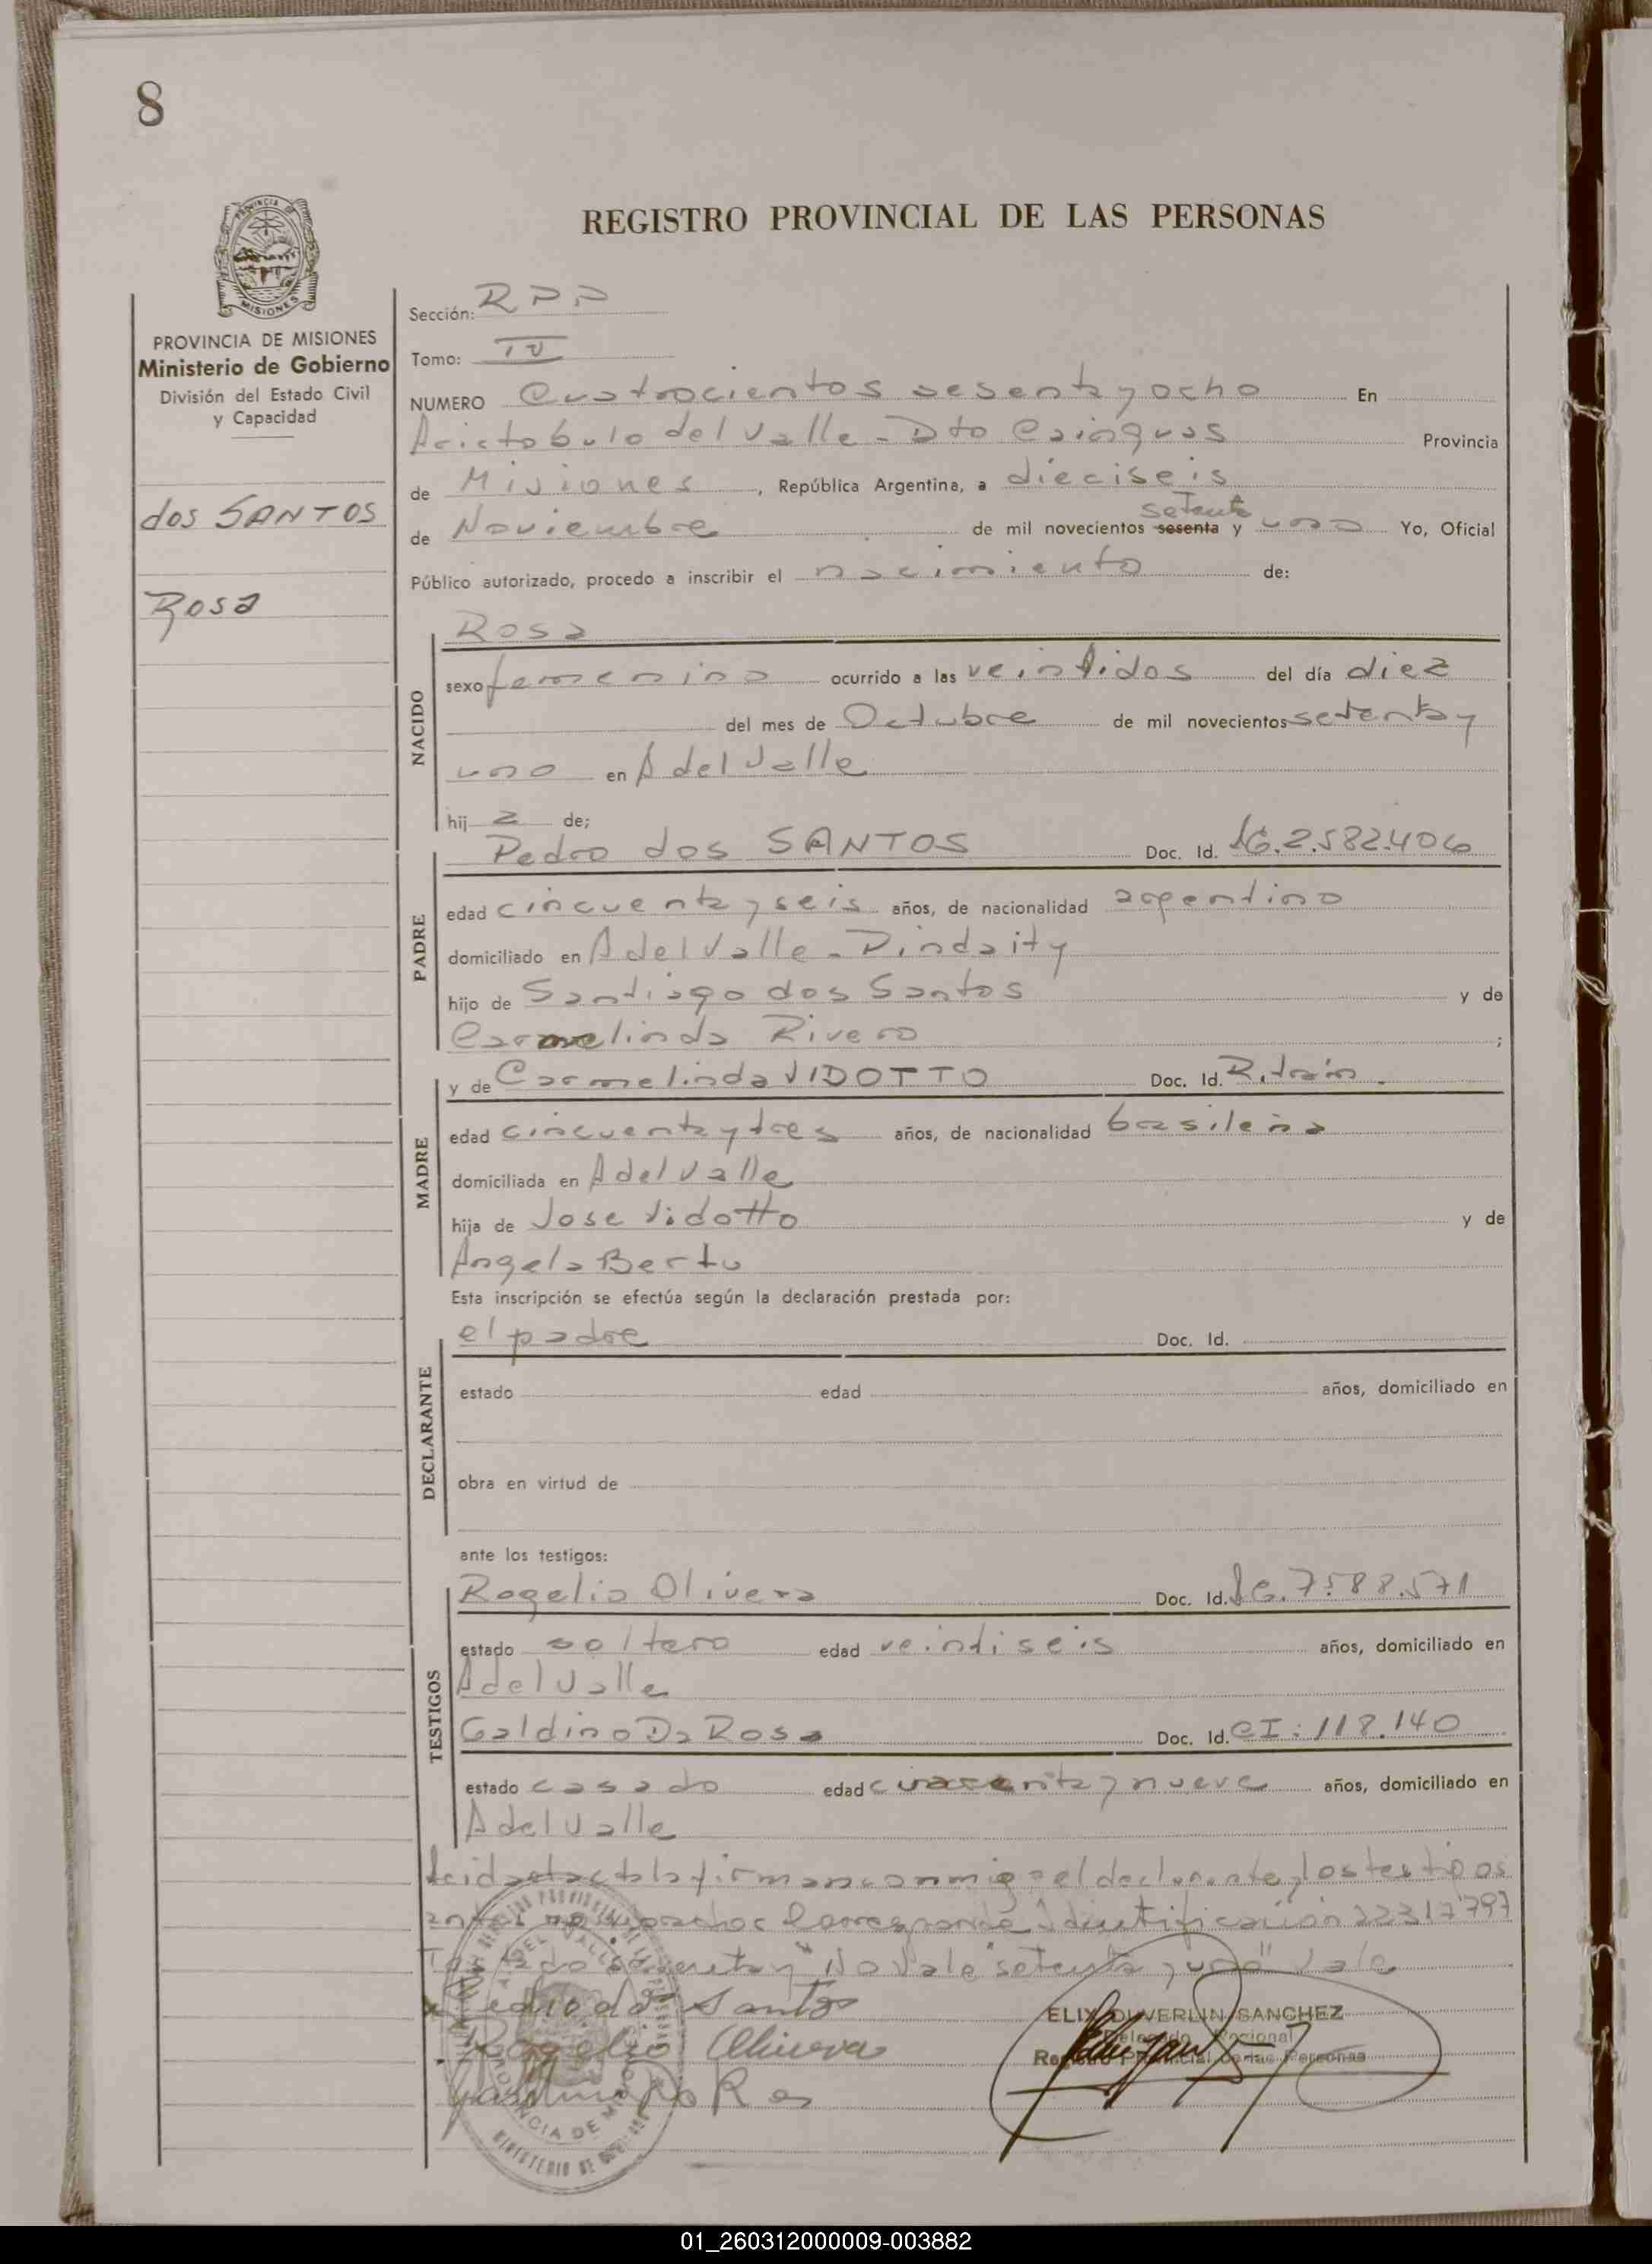 8
REGISTRO PROVINCIAL DE LAS PERSONAS
PROVINCIA DE MISIONES
Ministerio de Gobierno
División del Estado Civil
y Capacidad
dos SANTOS
Rosa
Sección: RPP
Tomo: IV
NUMERO Cuatrocientos sesenta y ocho En
Aristobulo del Valle - Dto Cainguas Provincia
de Misiones, República Argentina, a dieciseis
setenta
de Noviembre de mil novecientos sesenta y uno Yo, Oficial
Público autorizado, procedo a inscribir el nacimiento de:
NACIDO
Rosa
sexo femenino ocurrido a las veintidos del día diez
del mes de Octubre de mil novecientos setenta y
uno en A del Valle
hij a de;
PADRE
Pedro dos SANTOS Doc. Id. 2.582.406
edad cincuenta y seis años, de nacionalidad argentino
domiciliado en A del Valle - Pindaity
hijo de Santiago dos Santos y de
Carmelinda Rivero ;
MADRE
y de Carmelinda VIDOTTO Doc. Id.
edad cincuenta y tres años, de nacionalidad brasileña
domiciliada en A del Valle
hija de Jose Vidotto y de
Angela Bertu
Esta inscripción se efectúa según la declaración prestada por:
DECLARANTE
el padre Doc. Id.
estado edad años, domiciliado en
obra en virtud de
ante los testigos:
TESTIGOS
Rogelio Olivera Doc. Id. 7.588.571
estado soltero edad veintiseis años, domiciliado en
A del Valle
Galdino Da Rosa Doc. Id. CI: 118.140
estado casado edad cuarenta y nueve años, domiciliado en
A del Valle
Leida esta acta la firman conmigo el declarante y los testigos
Corresponde identificación 22317797
No Vale "setenta y uno" Vale
Pedro dos Santos
Rogelio Olivera
ELIX DUVERLIN SANCHEZ
Registro Provincial de las Personas
01_260312000009-003882